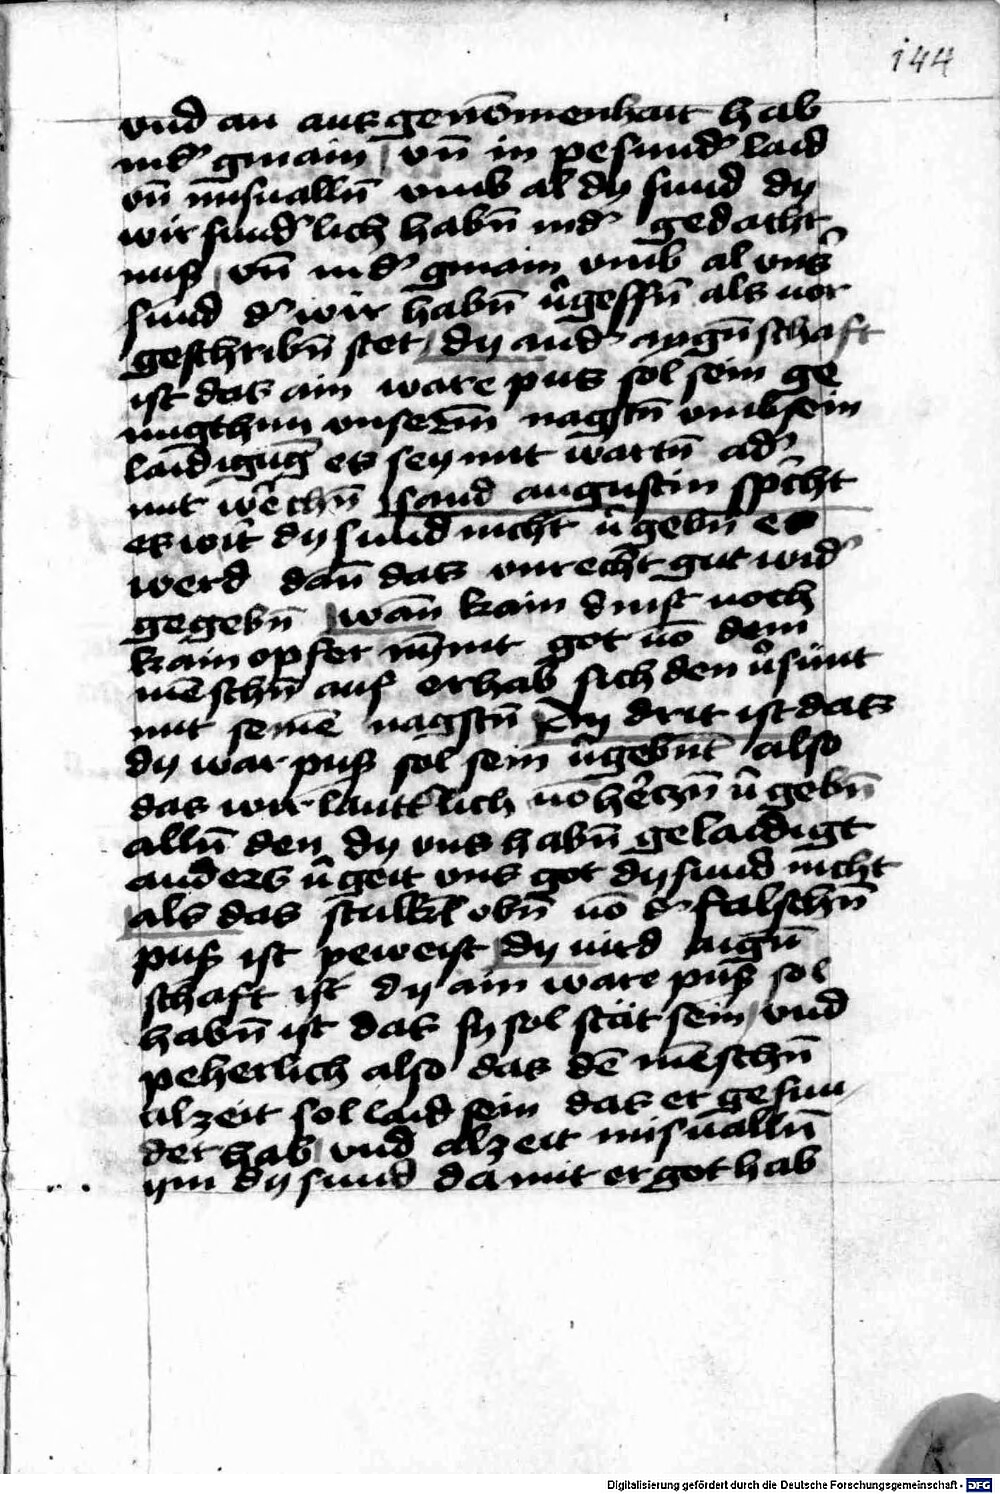 144
vnd an aus genōmenhait hab
in dˀ gmain / vn̄ in pesundˀ laid
vn̄ misuallñ vmb al dy sund dy
wir sundˀlich habn̄ in dˀ gedacht
nuß / vn̄ in dˀ gmain vmb al vnsˀ
sund dˀ wir habn̄ vˀgessn̄ als vor
geschribn̄ stet / dy andˀ aygn̄schaft
ist das ain ware pus sol sein ge
nugthun vnserm̄ nagstn̄ vmb sein
laidigūg es sey mit wartn̄ adˀ
mit wˀchn̄ sand augustin spˀcht
es wirt dy sund nicht vˀgebn̄ es
werd dan̄ das vnrecht gut widˀ
gegebn̄ wan̄ kain dinst noch
kain opfer nȳmt got vō dem
mēschn̄ auf er hab sich den vˀsunt
mit seinē nagstn̄ Dy drit ist das
dy war puß sol sein vˀgebnt also
das wir lautˀlich vō hˀczn̄ vˀgebn̄
alln̄ den dy vns habn̄ gelaidigt
anders vˀgeit vns got dy sund nicht
als das stukl obn̄ vō dˀ falschn̄
puß ist peweist dy vird aign̄
schaft ist dy ain ware puß sol
habn̄ ist das sy sol stät sein / vnd
peherlich also das dē mēschn̄
alzeit sol laid sein das er gesun/
det hab / vnd alzeit misualln̄
ym dy sund da mit er got hab
Digitalisierung gefördert durch die Deutsche Forschungsgemeinschaft - DFG